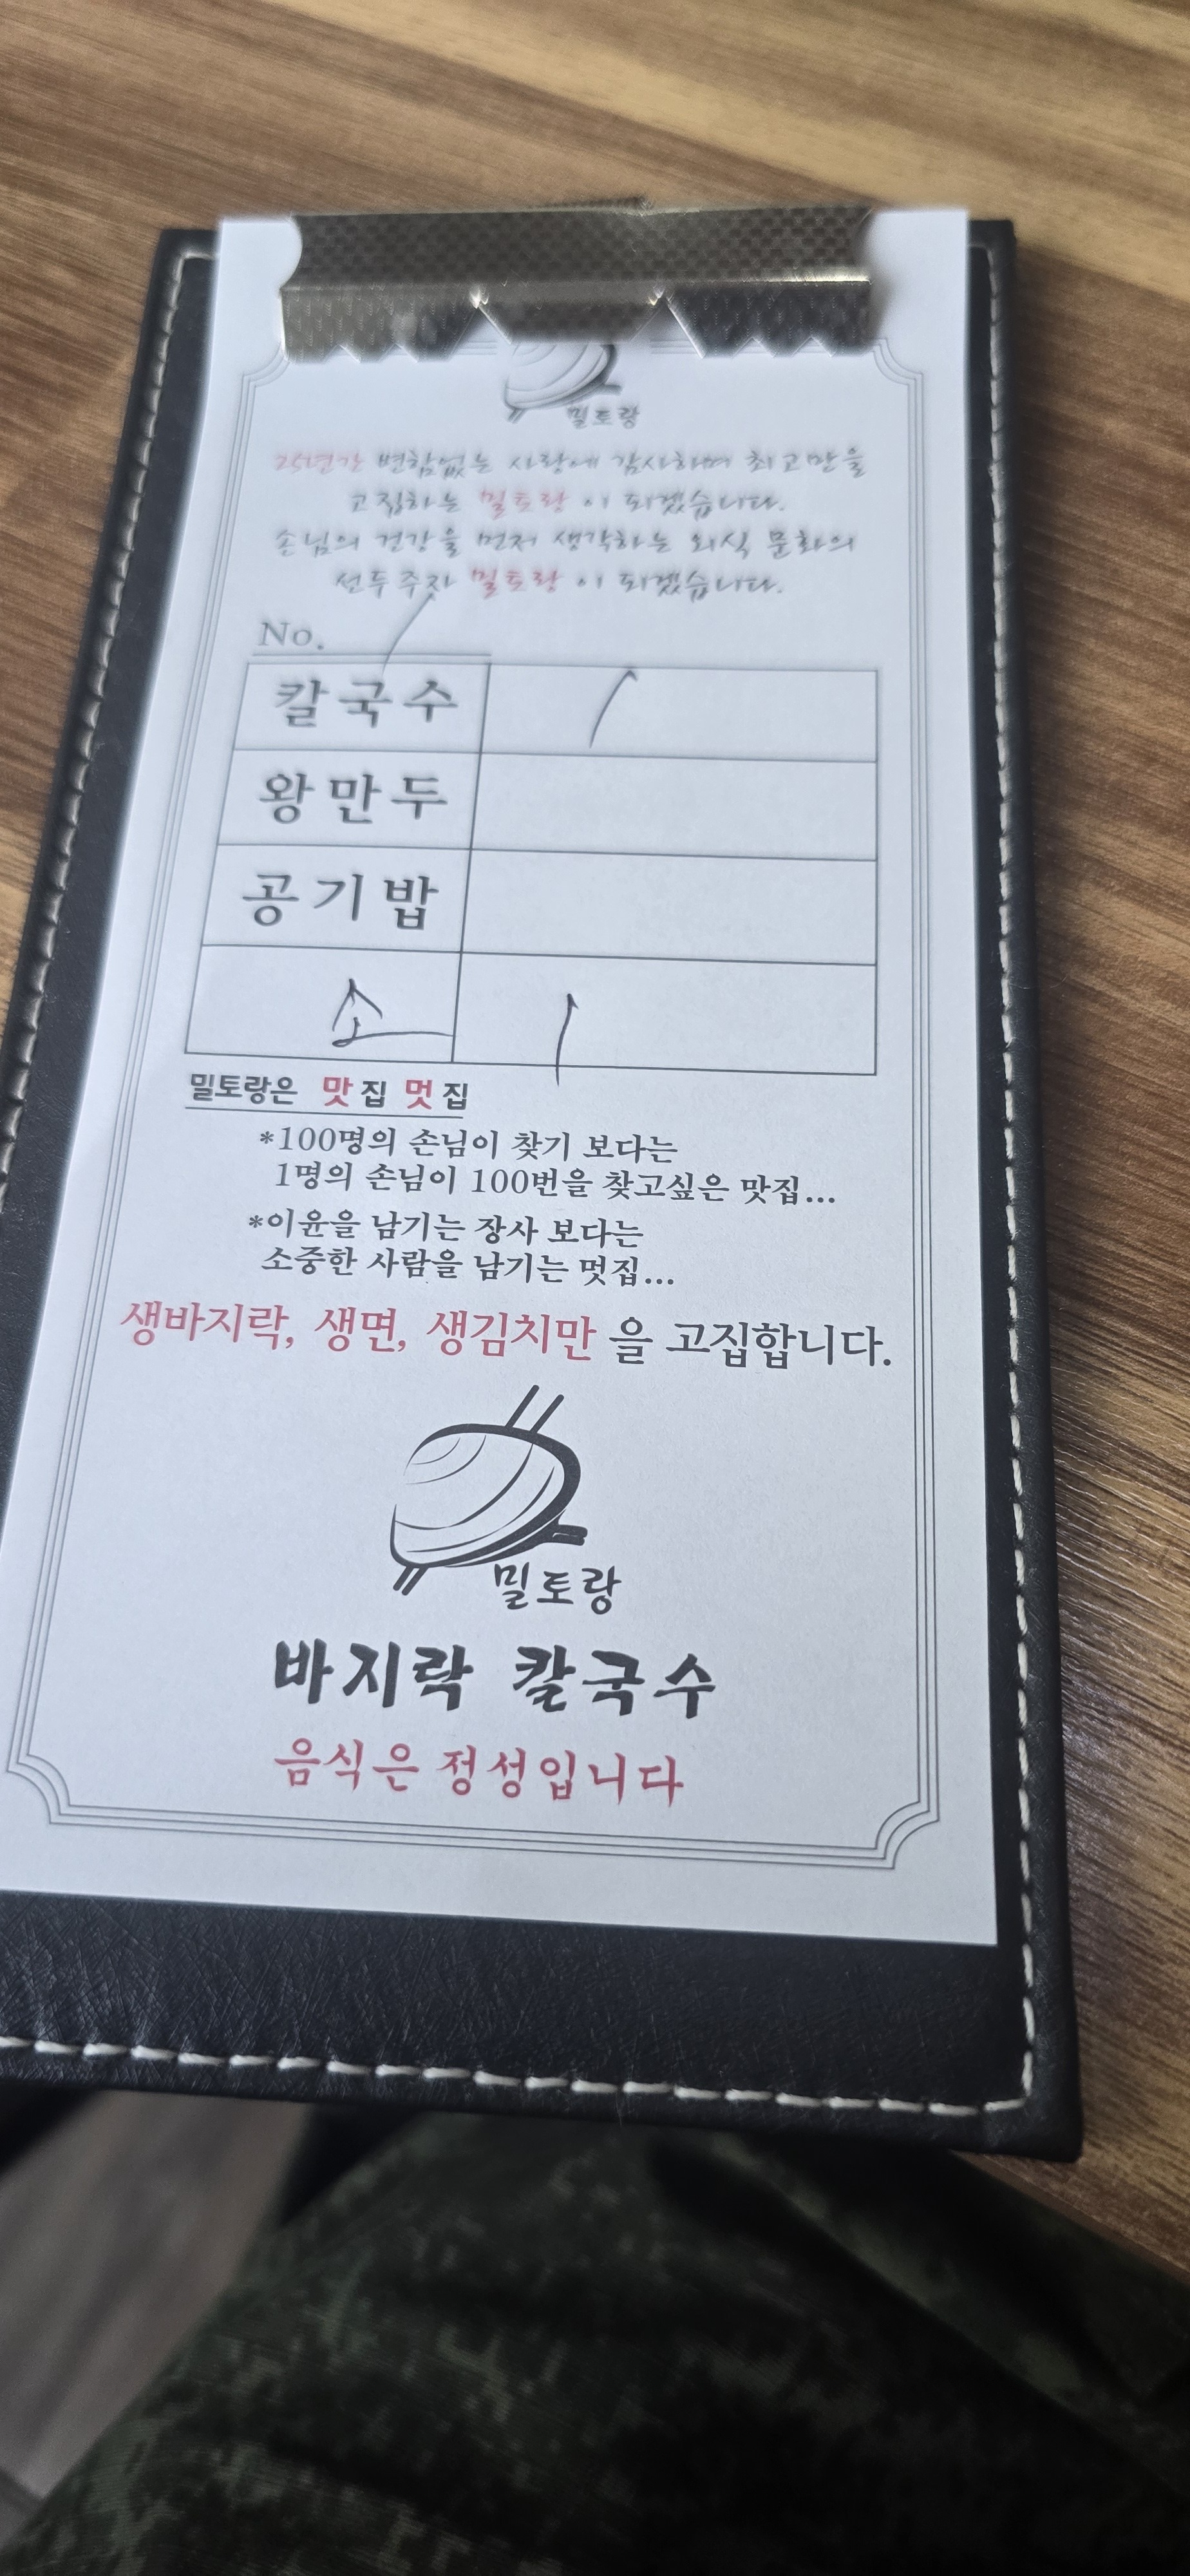 밀토랑
25년간 변함없는 사랑에 감사하며 최고만을
고집하는 밀토랑이 되겠습니다.
손님의 건강을 먼저 생각하는 외식 문화의
선두주자 밀토랑이 되겠습니다.
No.
칼국수 1
왕만두
공기밥
소 1
밀토랑은 맛집 멋집
*100명의 손님이 찾기 보다는
1명의 손님이 100번을 찾고싶은 맛집...
*이윤을 남기는 장사 보다는
소중한 사람을 남기는 멋집...
생바지락, 생면, 생김치만 을 고집합니다.
밀토랑
바지락 칼국수
음식은 정성입니다